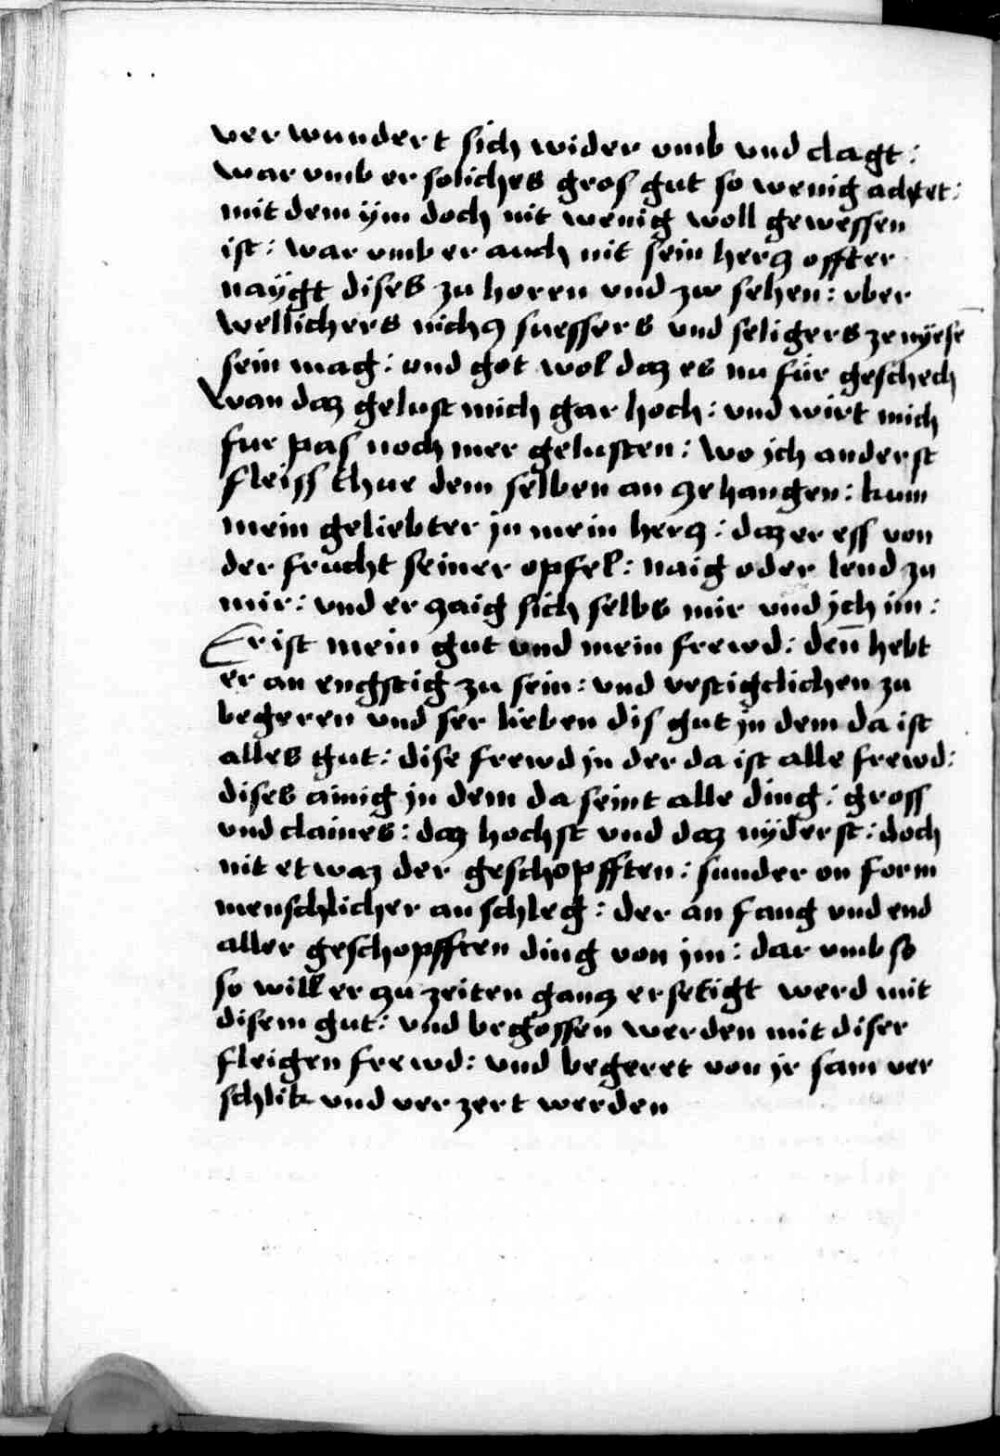 ver wundert sich wider vmb vnd clagt:
war vmb er soliches gros gut so wenig achtet:
mit dem ÿm doch nit wenig woll gewessen
ist: war vmb er auch nit sein hercz offter
naÿgt dises zu horen vnd zw sehen: vber
wellichers nichcz suessers vnd seligers ze nÿesē
sein mag: vnd got wol daz es nu für geschech
wan daz gelust mich gar hoch: vnd wirt mich
fur pas noch mer gelusten: wo jch anderst
fleiss thue dem selben an cze hangen: kum
mein geliebter jn mein hercz: daz er ess von
der frucht seiner opfel: naig oder lend zu
mir: vnd er czaig sich selbs mir vnd jch im:
Er ist mein gut vnd mein frewd: den̄ hebt
er an engstig zu sein: vnd vestigclichen zu
begeren vnd ser lieben dis gut jn dem da ist
alles gut: dise frewd jn der da ist alle frewd:
dises ainig jn dem da seint alle ding: gross
vnd claines: daz hochst vnd daz nÿderst: doch
nit etwaz der geschopfften: sunder on form
menschlicher an schleg: der an fang vnd end
aller geschopfften ding von jm: dar vmb so
so will er zu zeiten gancz ersetigt werd mit
disem gut: vnd begossen werden mit diser
fleigen frewd: vnd begeret von jr sam ver
schlik vnd ver zert werden